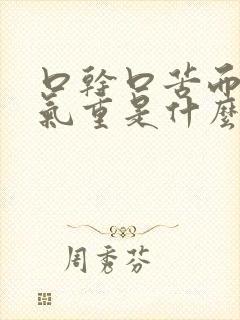 口幹口苦而
氣重是什麼
周秀芬